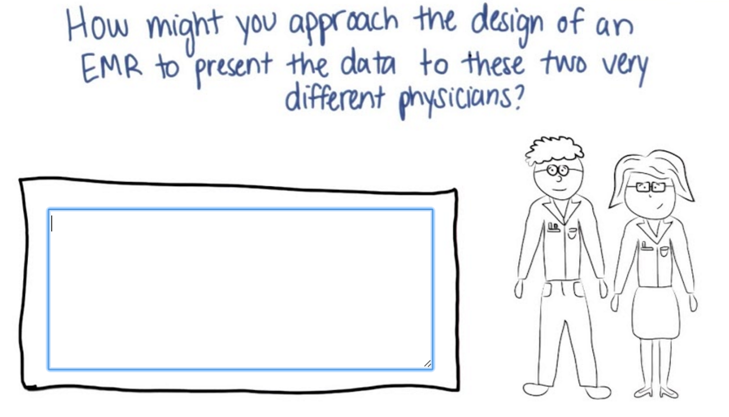 How might you approach the design of an
EMR to present the data to these two very
different physicians?